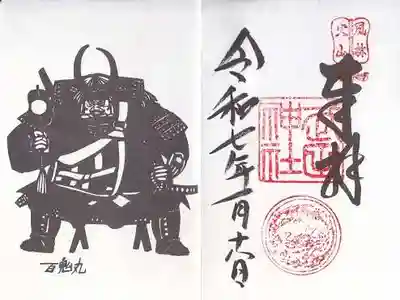 風林
火山
奉拝
武田
神社
令和七年一月十六日
百鬼丸